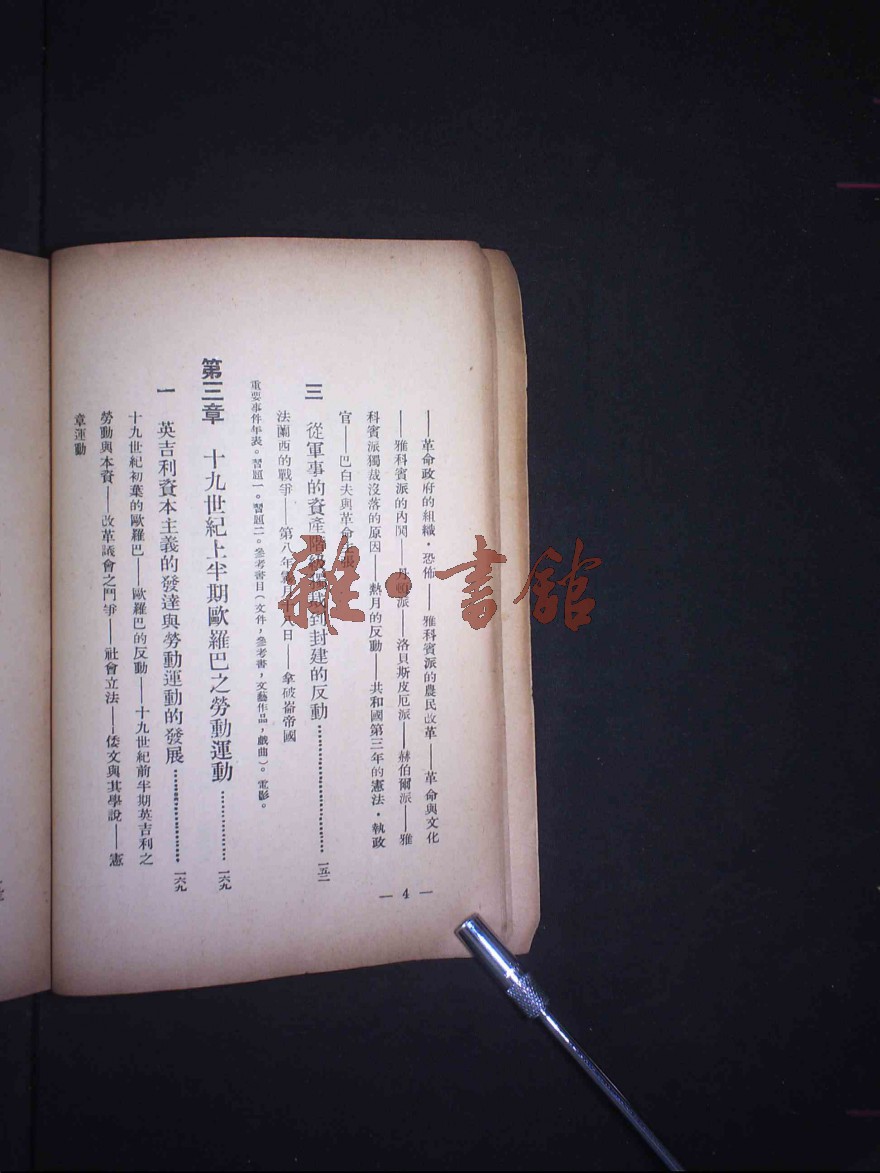 ——革命政府的組織・恐怖——雅科賓派的農民改革——革命與文化
——雅科賓派的內鬨——丹頓派——洛貝斯皮厄派——赫伯爾派——雅
科賓派獨裁沒落的原因——熱月的反動——共和國第三年的憲法・執政
官——巴白夫與革命
三 從軍事的資產階級獨裁到封建的反動……………………一五二
法蘭西的戰爭——第八年霧月十八日——拿破崙帝國
重要事件年表。習題一。習題二。參考書目(文件,參考書,文藝作品,戲曲)。電影。
第三章 十九世紀上半期歐羅巴之勞動運動……………一六九
一 英吉利資本主義的發達與勞動運動的發展………………一六九
十九世紀初葉的歐羅巴——歐羅巴的反動——十九世紀前半期英吉利之
勞動與本資——改革議會之鬥爭——社會立法——倭文與其學說——憲
章運動
— 4 —
雜・書館